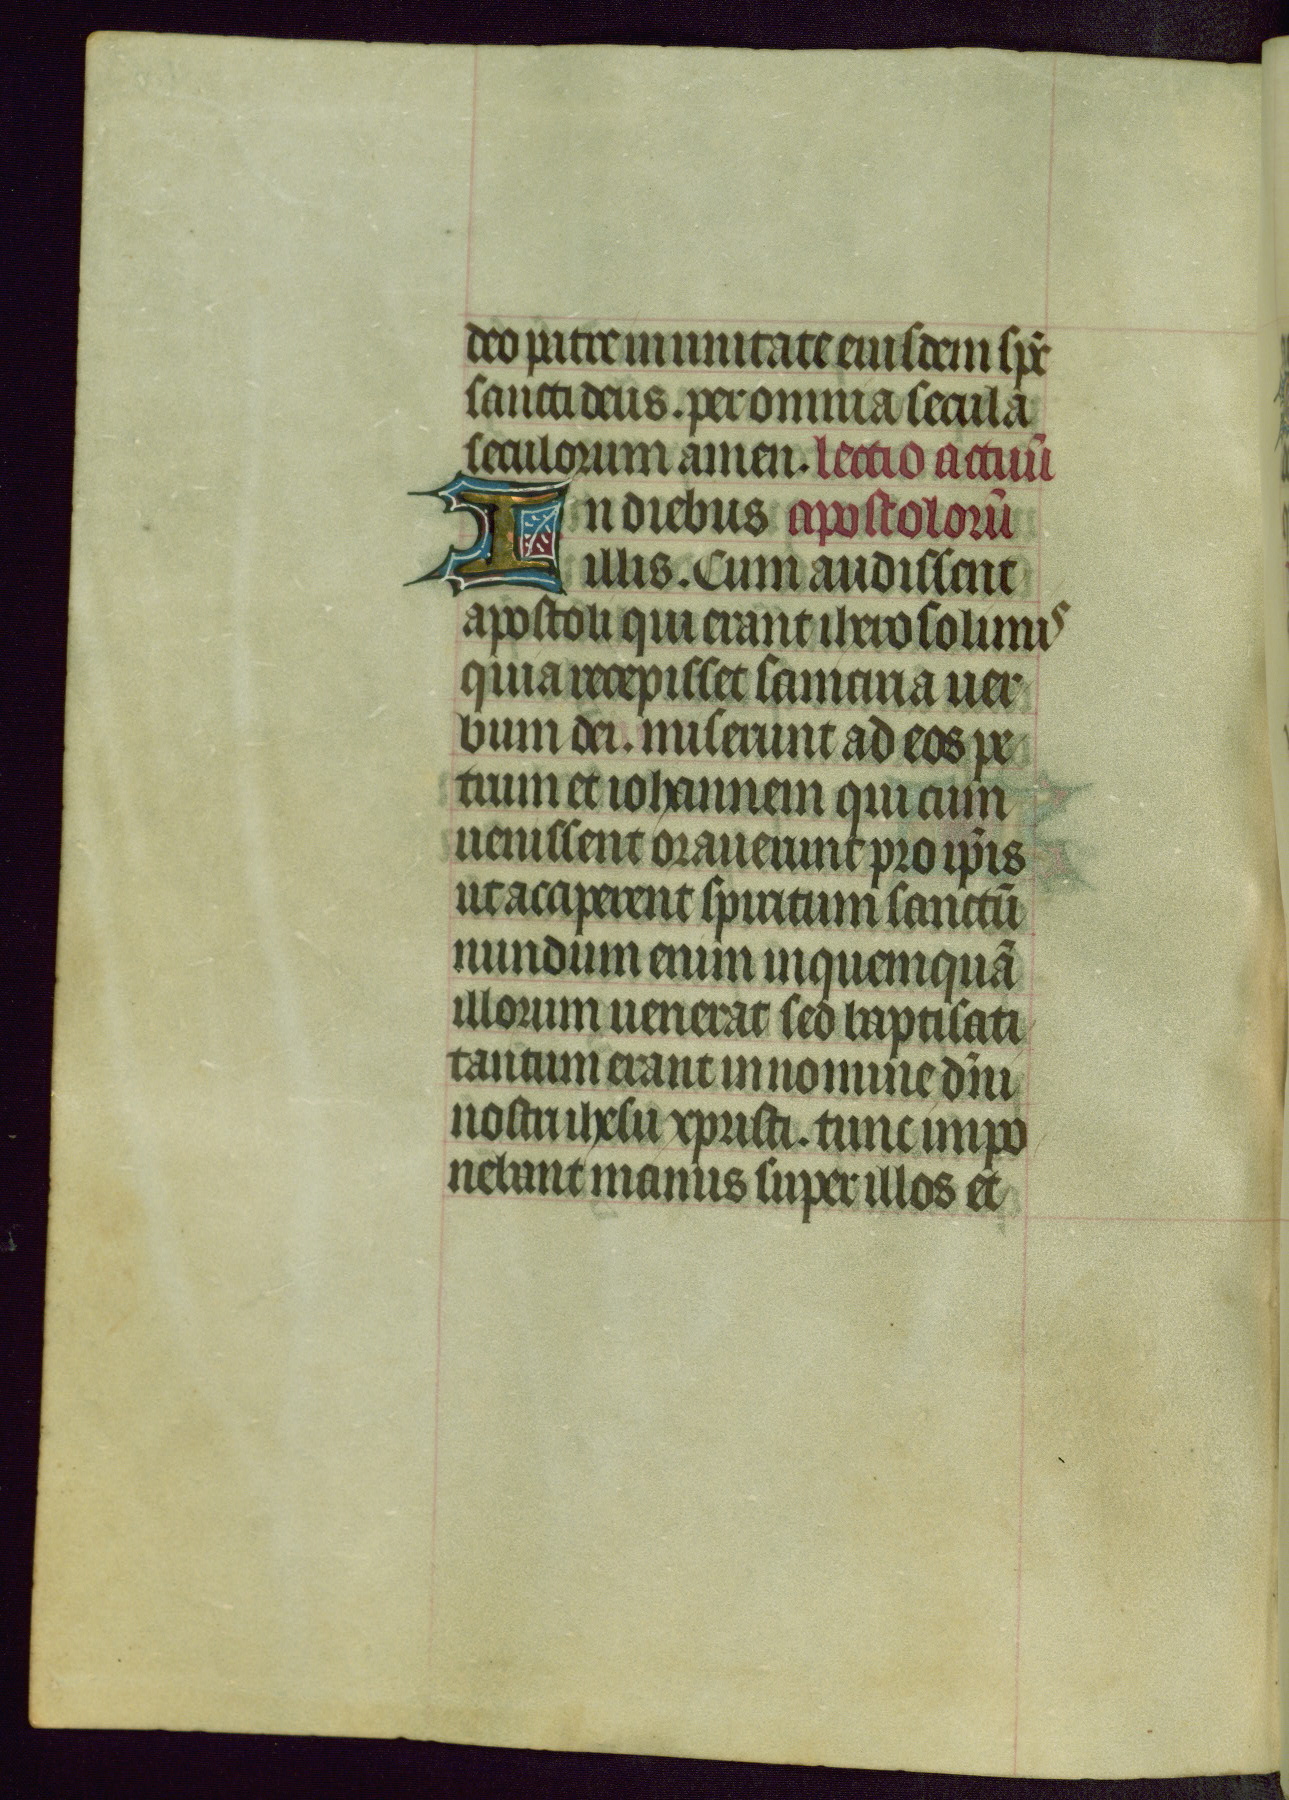 deo patre in unitate eiusdem sp̃c
sancti deus. per omnia secula
seculorum amen. lectio actuũ
In diebus apostolorũ
illis. Cum audissent
apostoli qui erant iherosolimis
quia recepisset samaria uer
bum dei. miserunt ad eos pe
trum et iohannem qui cum
uenissent orauerunt pro ip̃is
ut acciperent spiritum sanctũ
nundum enim in quemquã
illorum uenerat sed baptisati
tantum erant in nomine dñi
nostri ihesu xpristi. tunc impo
nebant manus super illos et